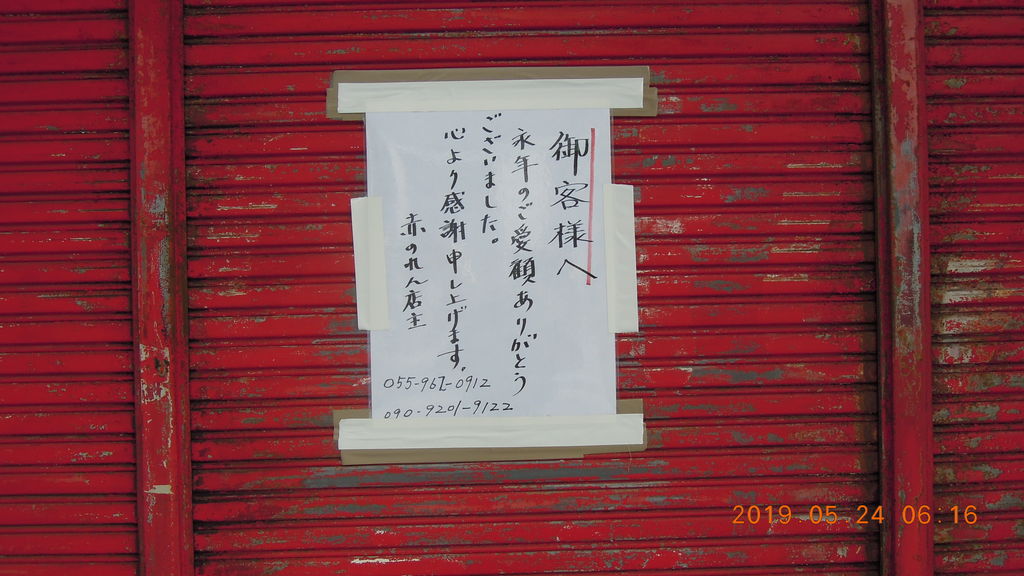 御客様へ
永年のご愛顧ありがとう
ございました。
心より感謝申し上げます。
赤のれん店主
055-967-0912
090-9201-9122
2019 05 24 06 16